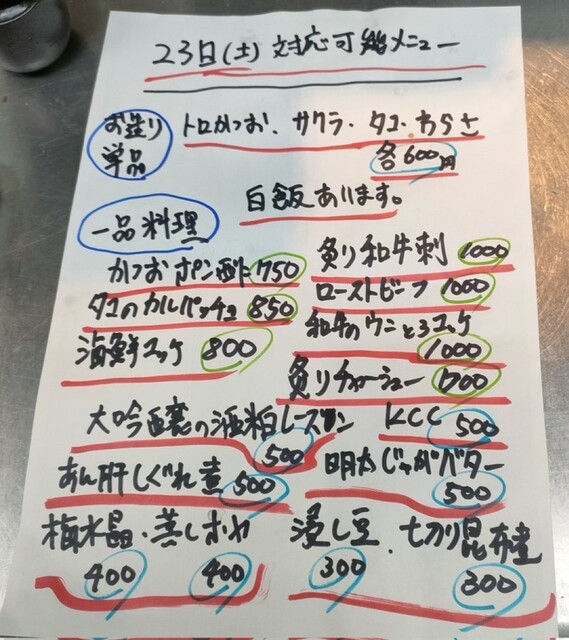 23日(土) 対応可能メニュー
お造り 単品
トロかつお、サクラ・タコ・わらさ
各600円
白飯あります。
一品料理
かつおポン酢 750
炙り和牛刺 1000
タコのカルパッチョ 850
ローストビーフ 1000
海鮮ユッケ 800
和牛のウニとろユッケ 1000
炙りチャーシュー 700
大吟醸の酒粕レーズン 500
KCC 500
あん肝しぐれ煮 500
明太じゃがバター 500
梅水晶・蒸しホヤ
400 400
浸し豆・七切り昆布煮
300 300